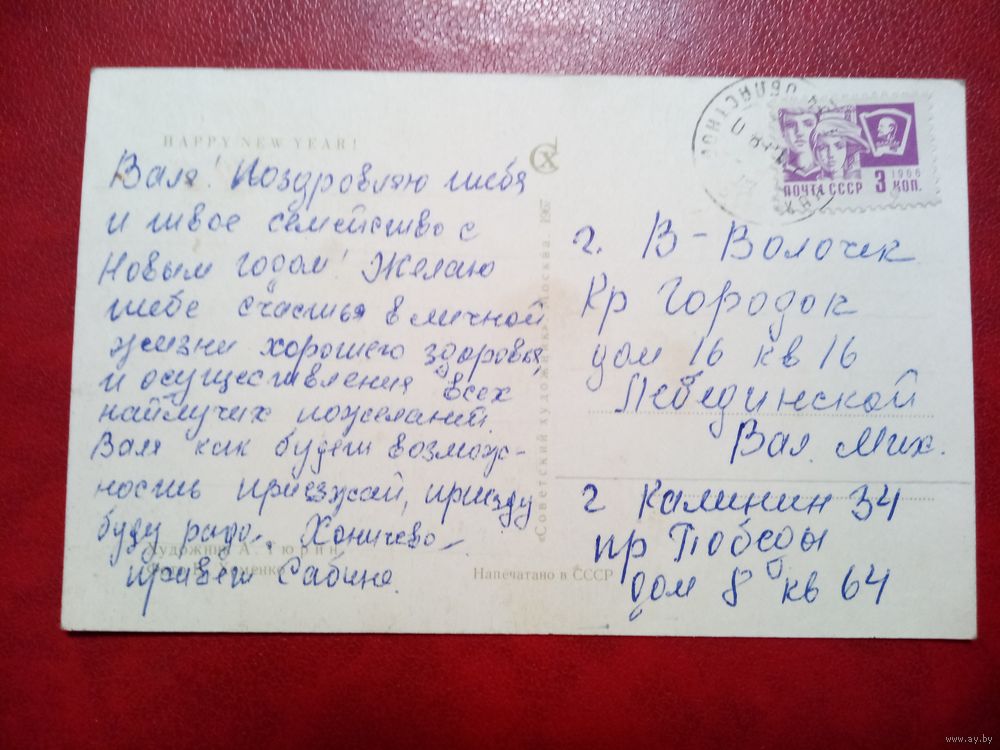 HAPPY NEW YEAR!
Валя! Поздровляю тебя
и твое семейство с
Новым годом! Желаю
тебе счастья в личной
жизни хорошего здоровья,
и осуществления всех
найлучих пожеланий.
Валя как будет возмож-
ность приезжай, приезду
буду рада.
привет Сабине.
Художник А. Тюрин
Фото Е. Хоменко
Напечатано в СССР
«Советский художник». Москва. 1967
ПОЧТА СССР 3 КОП.
1966
г. В-Волочек
Кр Городок
дом 16 кв 16
Лебединской
Вал. Мих.
г Калинин 34
пр Победы
дом 8 кв 64
www.ay.by